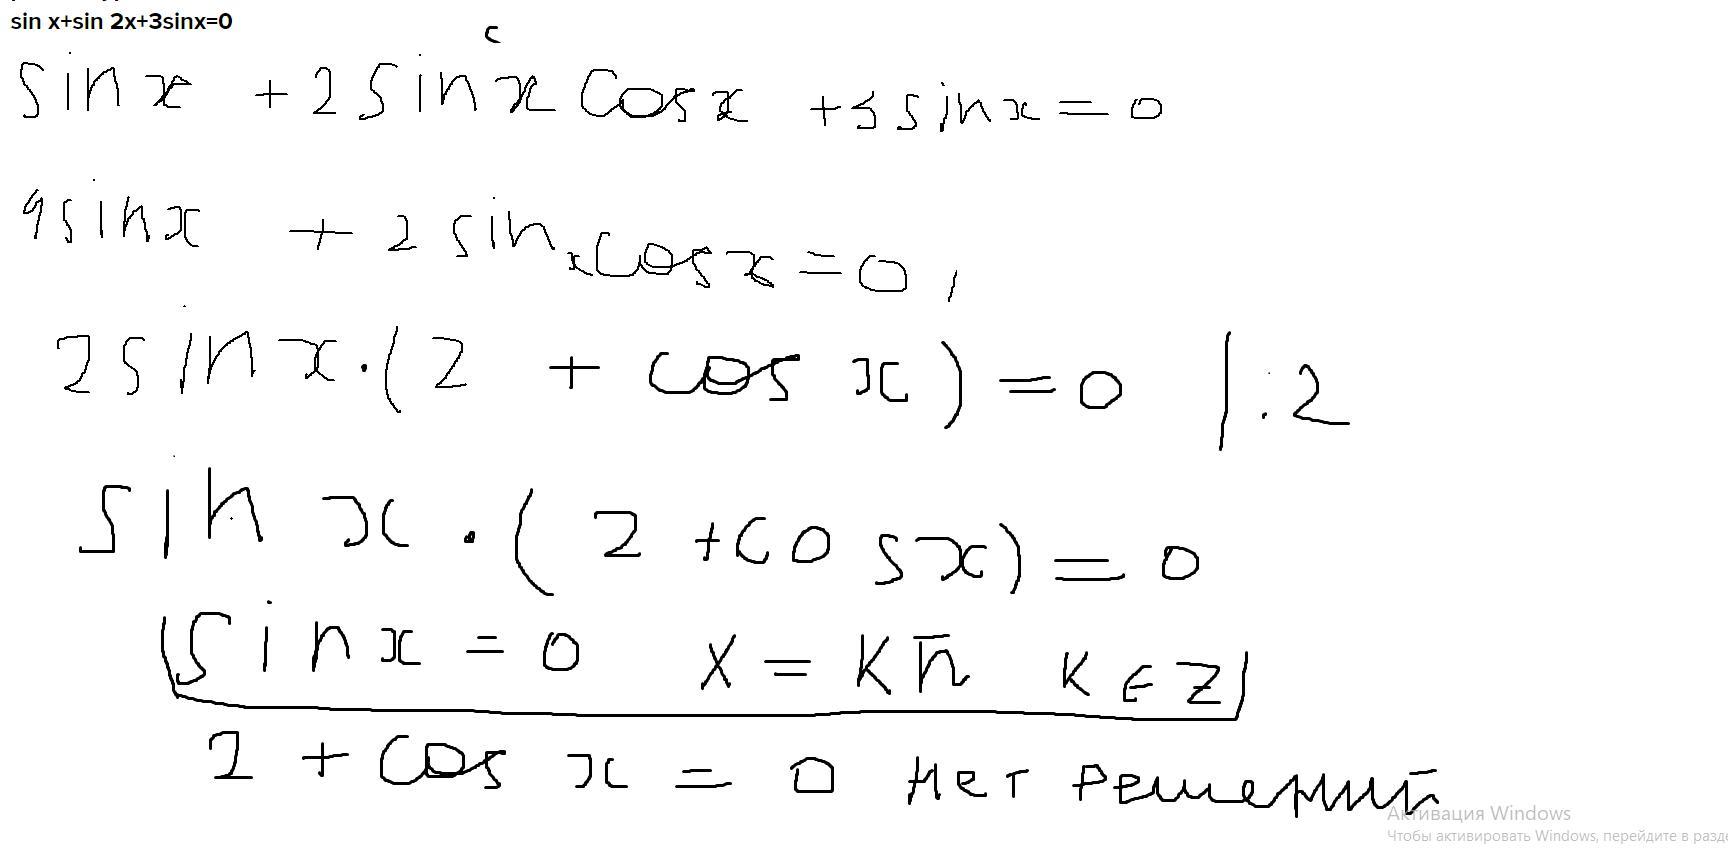 sin x+sin 2x+3sinx=0
sin x + 2 sin x cos x + 3 sin x = 0
4 sin x + 2 sin x cos x = 0,
2 sin x · (2 + cos x) = 0 | : 2
sin x · (2 + cos x) = 0
sin x = 0 x = kπ k ∈ Z
2 + cos x = 0 нет решений
Активация Windows
Чтобы активировать Windows, перейдите в разде